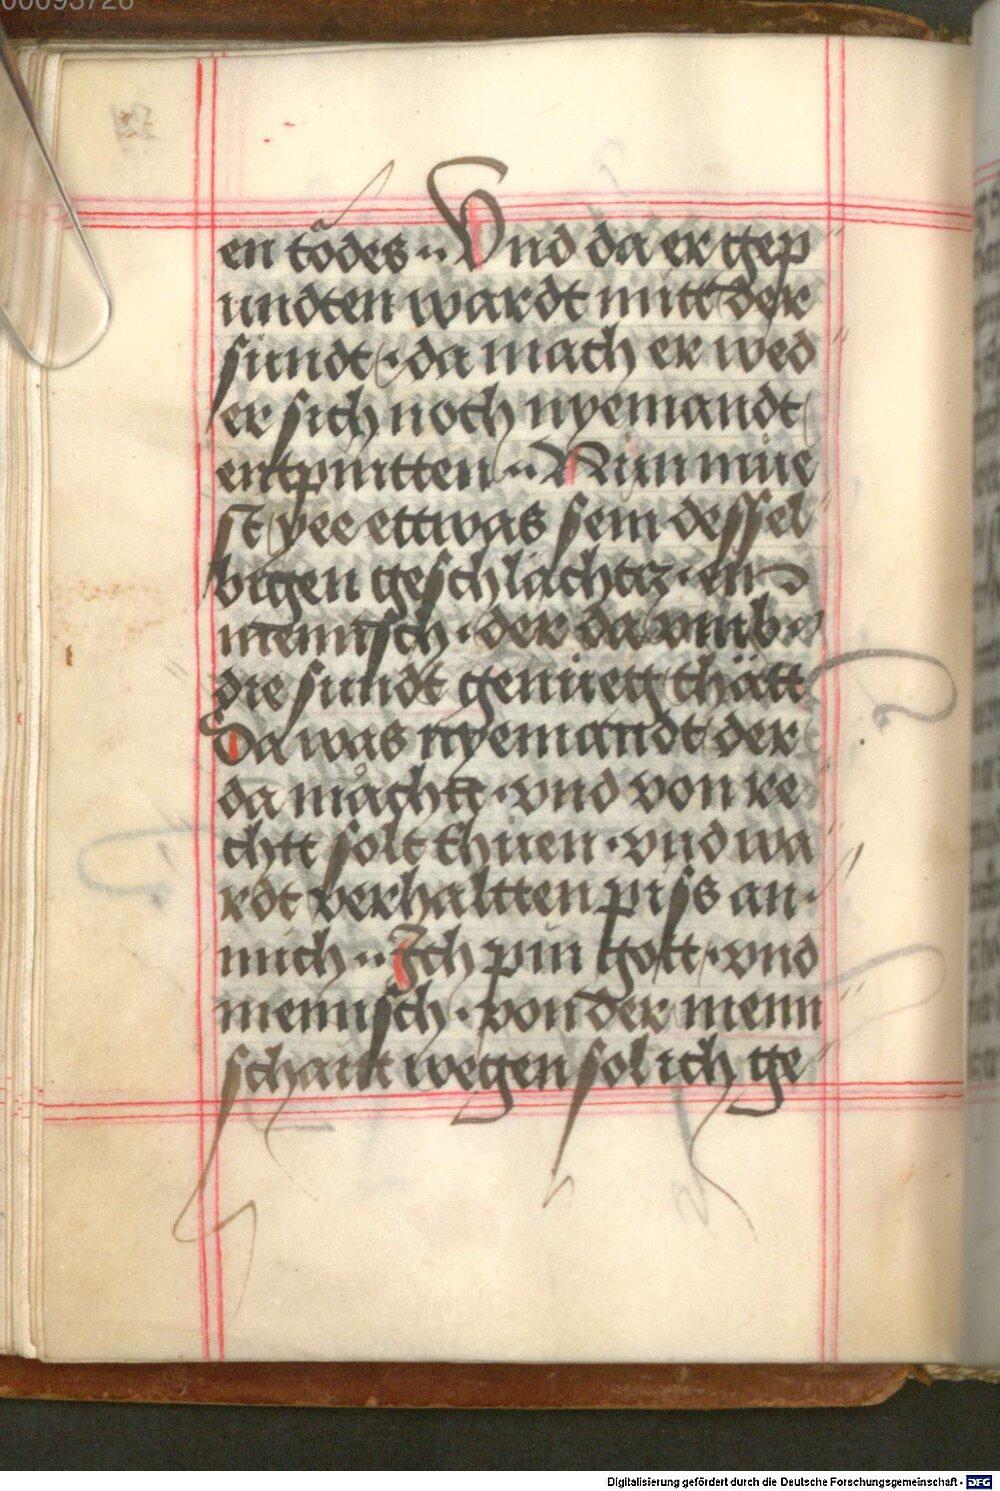 00093726
en tödes ·· Vnd da er gep
undten wardt mitt der
sundt · da mach er wed
er sich noch nyemandt
entpintten ·· Nun müe
st yee ettwas sein dessel
bigen geschlächtz · ein
mennsch · der da vmb
die sundt genueg thätt
Da was nyemandt der
da mächtt · vnd von re
chtt solt thuen · vnd wa
rdt verhaltten piss an
mich ·· Ich pin gott · vnd
mennsch · von der menn
schait wegen sol ich ge
Digitalisierung gefördert durch die Deutsche Forschungsgemeinschaft - DFG